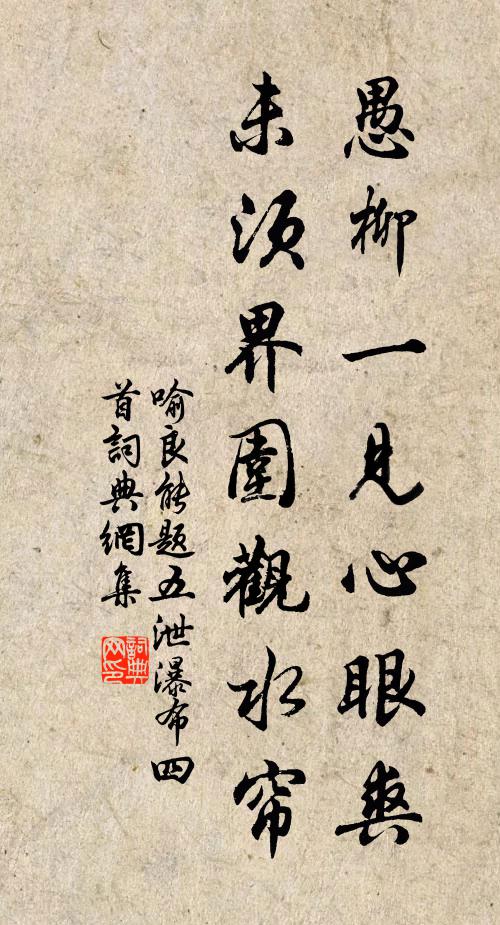 愚柳一見心眼爽
未須界圍觀水帘
喻良能題五泄瀑布四
首詞典網集
詞典
网印